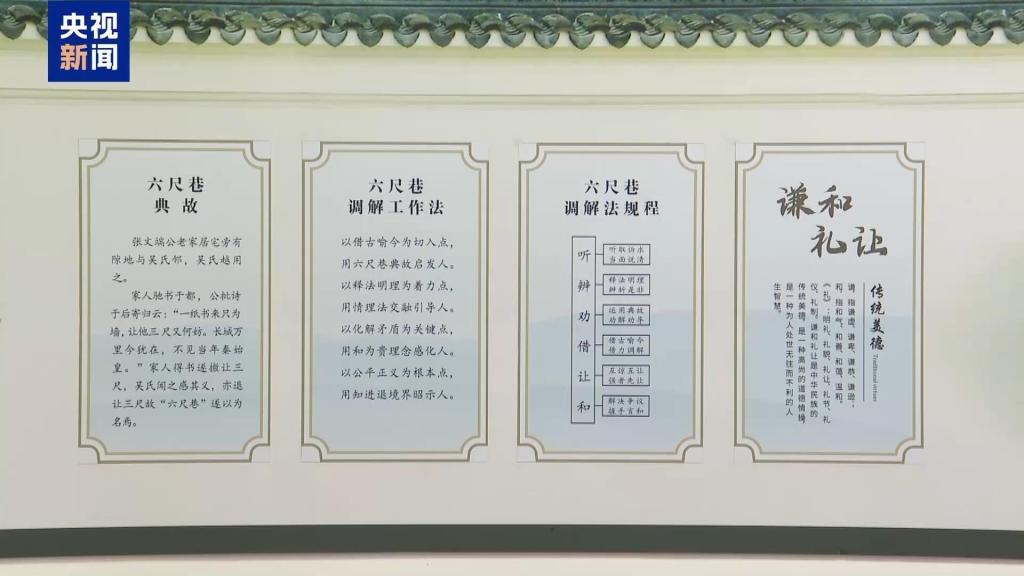 央视
新闻
六尺巷
典故
张文端公老家居宅旁有
隙地与吴氏邻，吴氏越用
之。
家人驰书于都，公批诗
于后寄归云：“一纸书来只为
墙，让他三尺又何妨。长城万
里今犹在，不见当年秦始
皇。”家人得书遂撤让三
尺，吴氏闻之感其义，亦退
让三尺故“六尺巷”遂以为
名焉。
六尺巷
调解工作法
以借古喻今为切入点，
用六尺巷典故启发人。
以释法明理为着力点，
用情理法交融引导人。
以化解矛盾为关键点，
用和为贵理念感化人。
以公平正义为根本点，
用知进退境界昭示人。
六尺巷
调解法规程
听
听取诉求
当面说清
辨
释法明理
辨析是非
劝
运用典故
劝解劝导
借
借古喻今
借力调解
让
互谅互让
强者先让
和
解决争议
握手言和
谦和
礼让
传统美德
Traditional virtues
谦，指谦虚、谦卑、谦恭、谦逊；
和，指和气、和善、和蔼、温和。
《礼》：明礼、礼貌、礼让、礼节、礼
仪、礼制。谦和礼让是中华民族的
传统美德，是一种高尚的道德情操，
是一种为人处世无往而不利的人
生智慧。